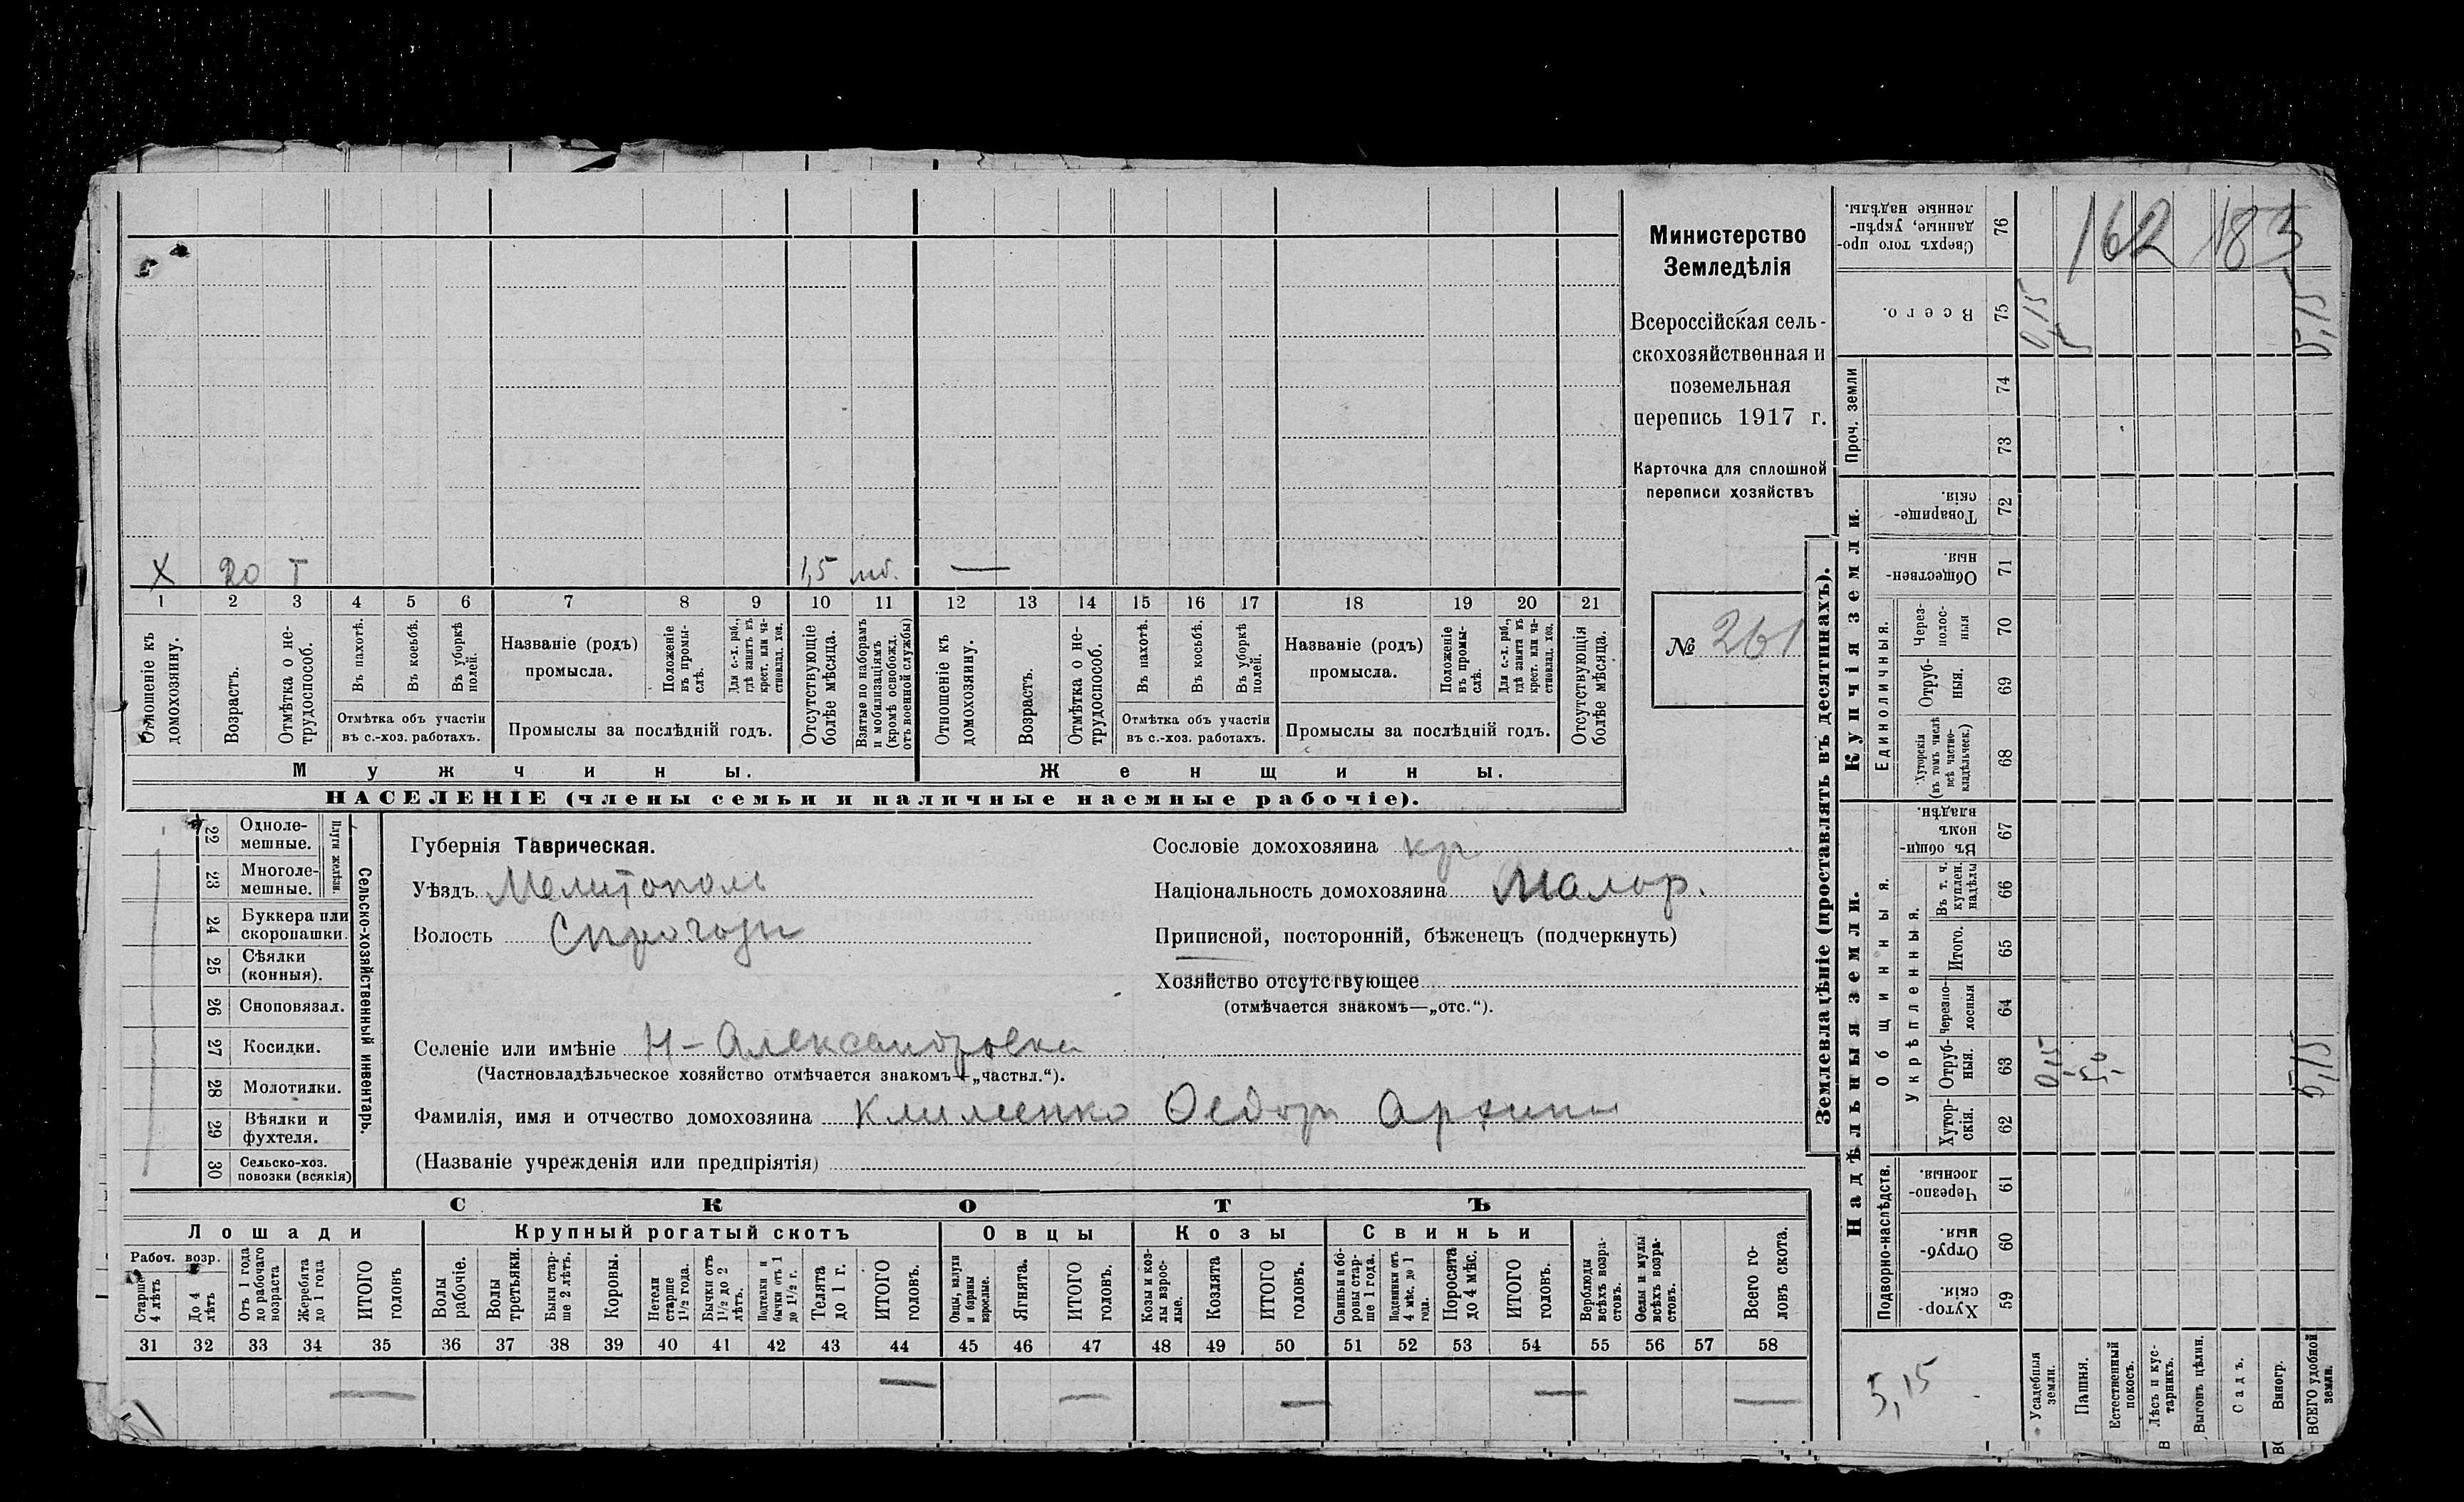 Министерство
Земледѣлія
Всероссійская сель-
скохозяйственная и
поземельная
перепись 1917 г.
Карточка для сплошной
переписи хозяйствъ
№ 261
Х 20 Т 1,5 мб. —
1 2 3 4 5 6 7 8 9 10 11 12 13 14 15 16 17 18 19 20 21
Отношеніе къ домохозяину.
Возрастъ.
Отмѣтка о не-трудоспособ.
Въ пахотѣ.
Въ косьбѣ.
Въ уборкѣ полей.
Отмѣтка объ участіи
въ с.-хоз. работахъ.
Названіе (родъ)
промысла.
Положеніе въ промы-слѣ.
Для с.-х. раб., гдѣ занятъ въ крест. или ча-стновлад. хоз.
Промыслы за послѣдній годъ.
Отсутствующіе болѣе мѣсяца.
Взятые по наборамъ и мобилизаціямъ (кромѣ освобожд. отъ военной службы)
Отношеніе къ домохозяину.
Возрастъ.
Отмѣтка о не-трудоспособ.
Въ пахотѣ.
Въ косьбѣ.
Въ уборкѣ полей.
Отмѣтка объ участіи
въ с.-хоз. работахъ.
Названіе (родъ)
промысла.
Положеніе въ промы-слѣ.
Для с.-х. раб., гдѣ занята въ крест. или ча-стновлад. хоз.
Промыслы за послѣдній годъ.
Отсутствующія болѣе мѣсяца.
Мужчины.
Женщины.
НАСЕЛЕНІЕ (члены семьи и наличные наемные рабочіе).
22 Одноле-мешные.
23 Многоле-мешные.
Плуги желѣзн.
24 Буккера или скоропашки.
25 Сѣялки (конныя).
26 Сноповязал.
27 Косилки.
28 Молотилки.
29 Вѣялки и фухтеля.
30 Сельско-хоз. повозки (всякія)
Сельско-хозяйственный инвентарь.
Губернія Таврическая.
Уѣздъ Мелитополь
Волость
Сословіе домохозяина кр
Національность домохозяина Малор.
Приписной, посторонній, бѣженецъ (подчеркнуть)
Хозяйство отсутствующее
(отмѣчается знакомъ—„отс.“).
Селеніе или имѣніе Н-Александровка
(Частновладѣльческое хозяйство отмѣчается знакомъ—„частвл.“).
Фамилія, имя и отчество домохозяина Клименко Федоръ Архипы
(Названіе учрежденія или предпріятія)
СКОТЪ
Лошади
Крупный рогатый скотъ
Овцы
Козы
Свиньи
Рабоч. возр.
Старше 4 лѣтъ
До 4 лѣтъ
Отъ 1 года до рабочаго возраста
Жеребята до 1 года
ИТОГО головъ
Волы рабочіе.
Волы третьяки.
Быки стар-ше 2 лѣтъ.
Коровы.
Нетели старше 1½ года.
Бычки отъ 1½ до 2 лѣтъ.
Подтелки и бычки отъ 1 до 1½ г.
Телята до 1 г.
ИТОГО головъ.
Овцы, валухи и бараны взрослые.
Ягнята.
ИТОГО головъ.
Козы и коз-лы взрос-лые.
Козлята
ИТОГО головъ.
Свиньи и бо-ровы стар-ше 1 года.
Подсвинки отъ 4 мѣс. до 1 года.
Поросята до 4 мѣс.
ИТОГО головъ.
Верблюды всѣхъ возра-стовъ.
Ослы и мулы всѣхъ возра-стовъ.
Всего го-ловъ скота.
31 32 33 34 35 36 37 38 39 40 41 42 43 44 45 46 47 48 49 50 51 52 53 54 55 56 57 58
— — — — — —
Землевладѣніе (проставлять въ десятинахъ).
Надѣльныя земли.
Купчія земли.
Проч. земли
Подворно-наслѣдств.
Общинныя.
Укрѣпленныя.
Единоличныя.
Хутор-скія. 59
Отруб-ныя. 60
Черезпо-лосныя. 61
Хутор-скія. 62
Отруб-ныя. 63
Черезпо-лосныя 64
Итого. 65
Въ т. ч. куплен. надѣлы 66
Въ общи-номъ владѣн. 67
Хуторскія (въ томъ числѣ всѣ частно-владѣльческ.) 68
Отруб-ныя. 69
Через-полос-ныя 70
Обществен-ныя. 71
Товарище-скія. 72
73
74
Всего. 75
Сверхъ того про-данные, укрѣп-ленные надѣлы. 76
162 183
0,15 5 5,15
0,15 5,0 5,15
5,15
Усадебныя земли.
Пашня.
Естественный покосъ.
Лѣсъ и кус-тарникъ.
Выгонъ цѣлин.
Садъ.
Виногр.
ВСЕГО удобной земли.